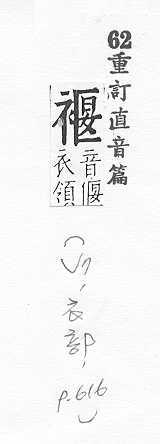 62重訂直音篇
褗
音偃
衣領
(V7, 衣部, p.616)